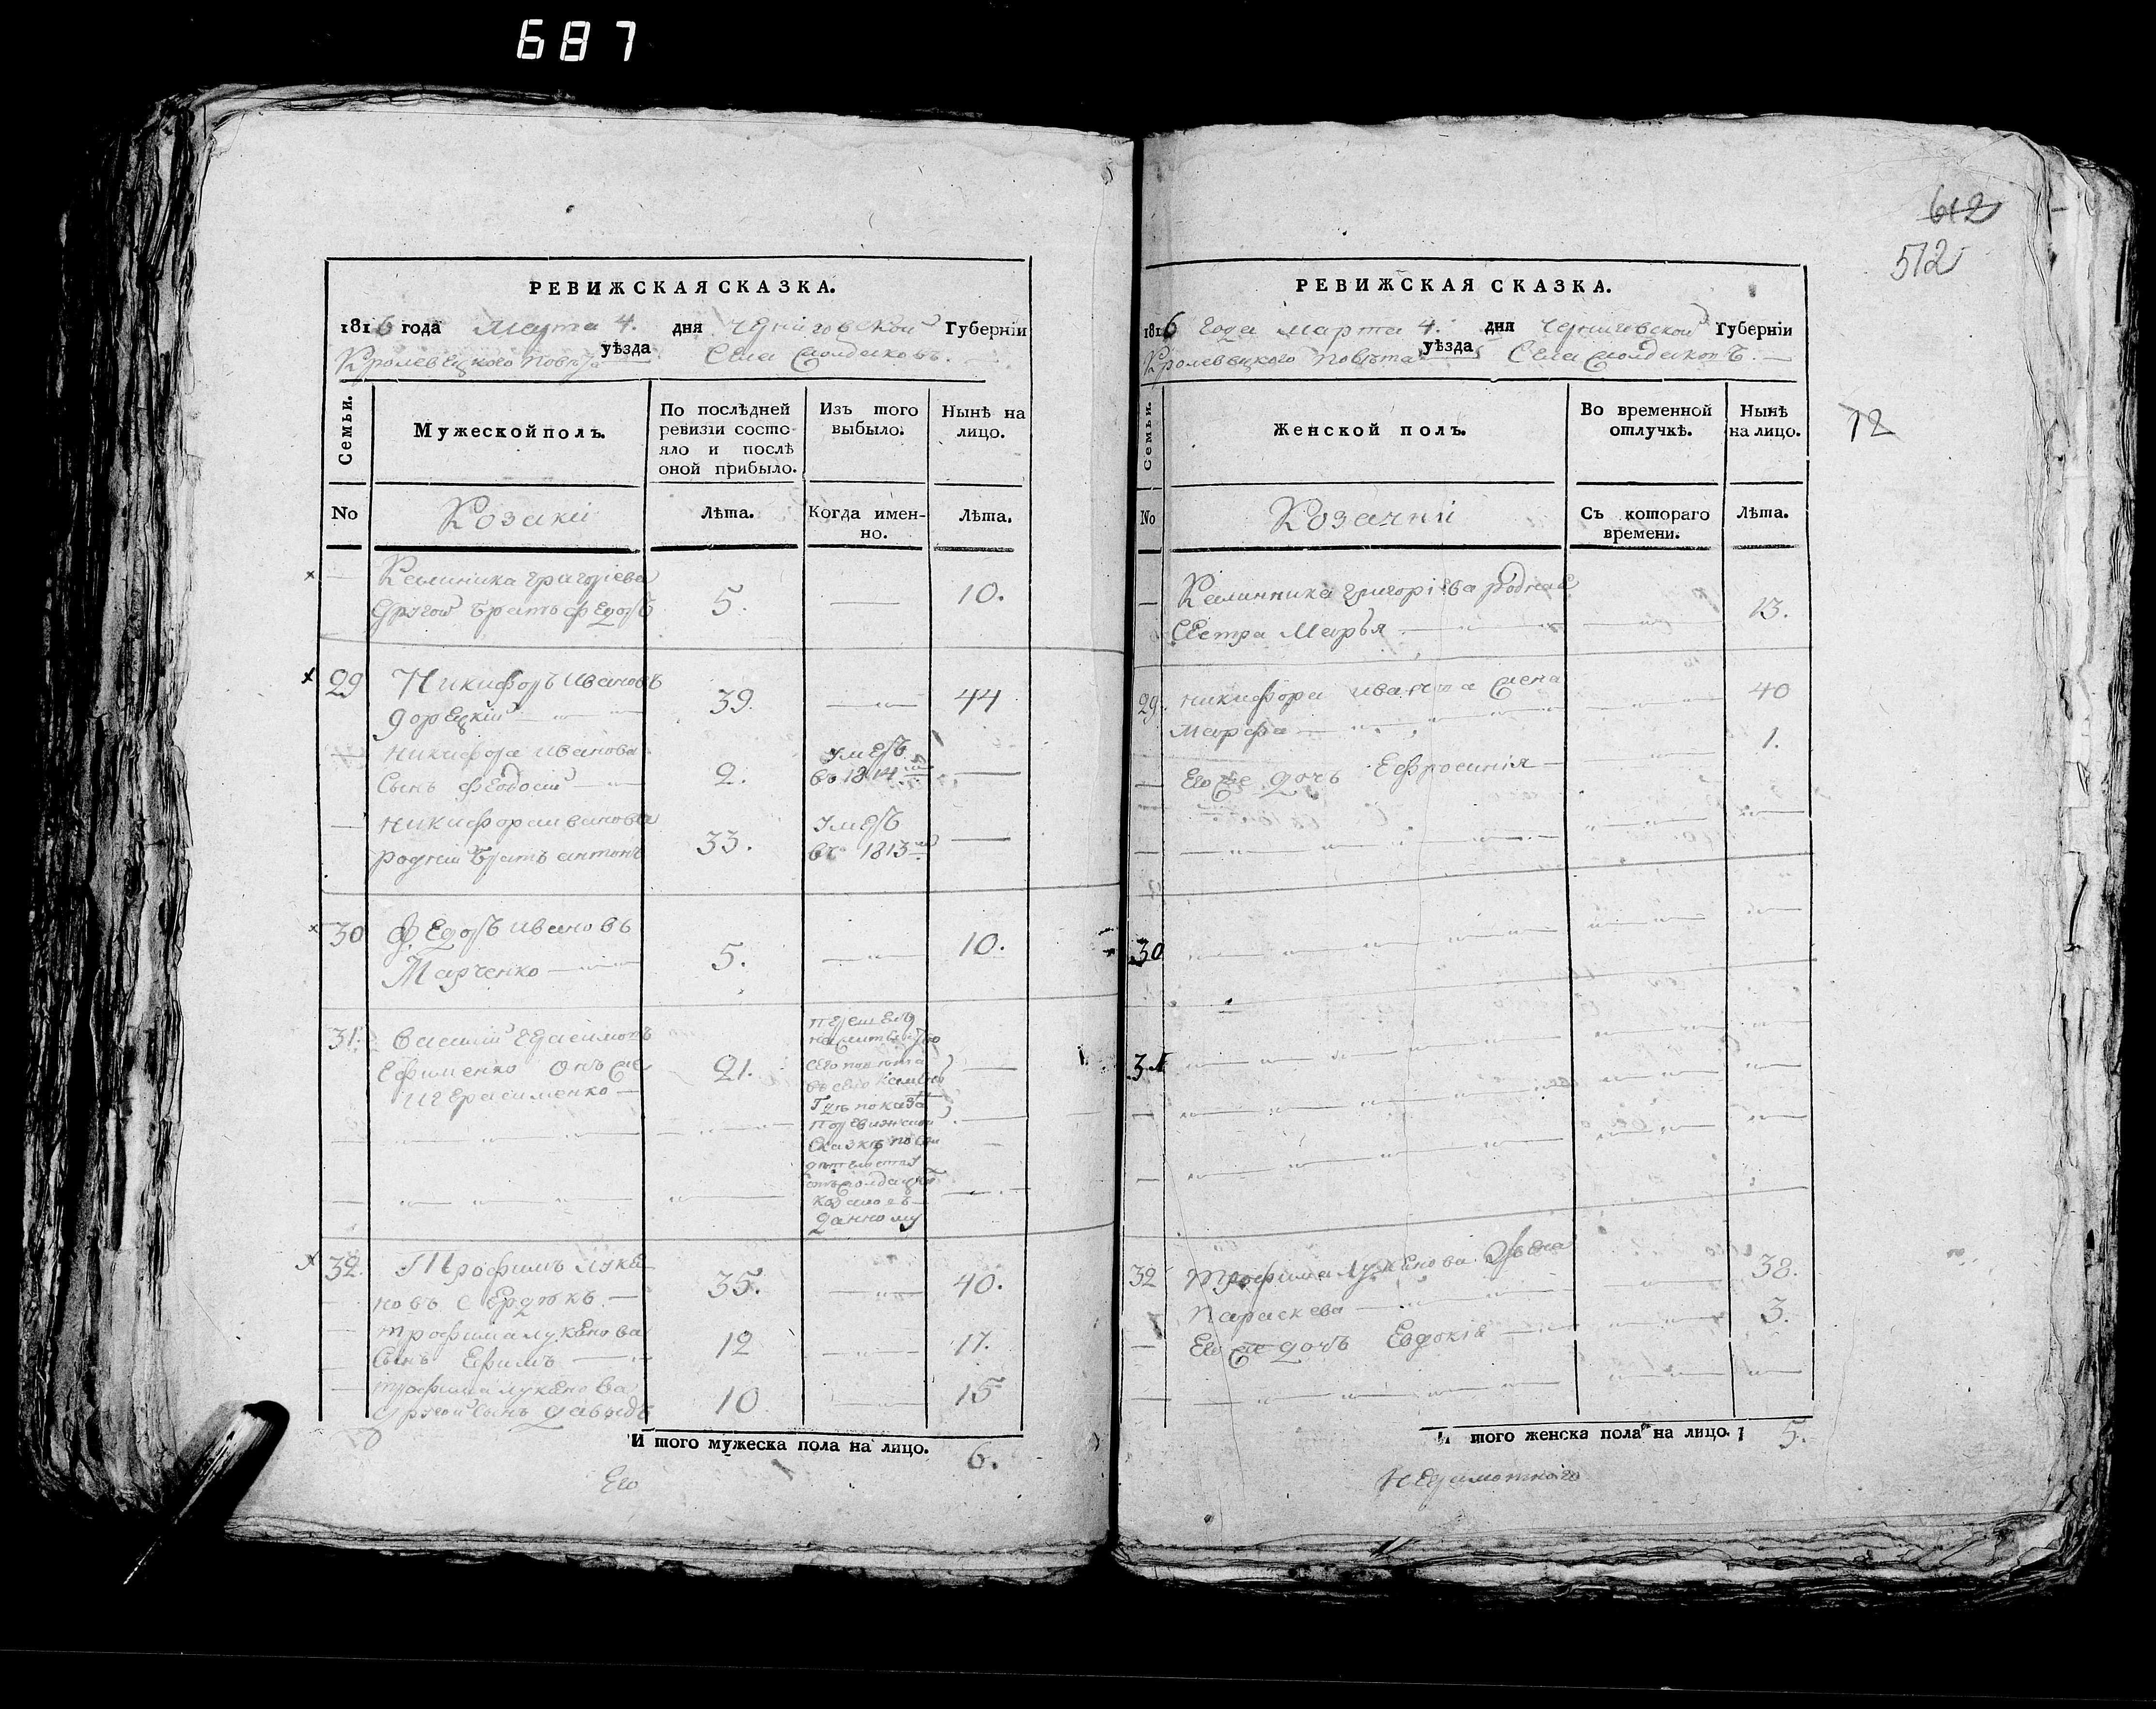 687
612
512
12
РЕВИЖСКАЯ СКАЗКА.
1816 года Марта 4. дня Черниговской Губерніи
Кролевецкого Повета уѣзда Села
Семьи.
Мужеской полъ.
По послѣдней ревизіи состояло и послѣ оной прибыло.
Изъ того выбыло.
Нынѣ на лицо.
No
Козаки
Лѣта.
Когда именно.
Лѣта.
Калиника григоріева
другой братъ федоръ 5. 10.
29 Никифоръ Ивановъ
39. 44
никифора иванова
Сынъ феодосий 2. умеръ въ 1814
никифора иванова
родний братъ антонъ 33. умеръ въ 1813
30 федоръ ивановъ
Марченко 5. 10.
31. Василий Герасимовъ
Ефименко онъ же
и Герасименко 21.
перешелъ
сего повета
въ село
где показа
по ревижской
Сказке по

козаковъ
данному
32. Трофимъ Лукя
новъ Сердюкъ 35. 40.
трофима лукянова
Сынъ Ефимъ 12 17.
трофима лукянова
другой Сынъ давыдъ 10 15
И того мужеска пола на лицо. 6.
Его
РЕВИЖСКАЯ СКАЗКА.
1816 года марта 4. дня Черниговской Губерніи
Кролевецкого повѣта уѣзда Села
Семьи.
Женской полъ.
Во временной отлучкѣ.
Нынѣ на лицо.
No
Козачки
Съ котораго времени.
Лѣта.
Калинника григоріева родная
Сестра Марья 13.
29. никифора иванова жена
Марфа 40
Его же дочь Ефросинія 1.
30
31
32 трофима лукянова жена
Параскева 38.
Его же дочь Евдокія 3.
И того женска пола на лицо. 5.
неграмотного